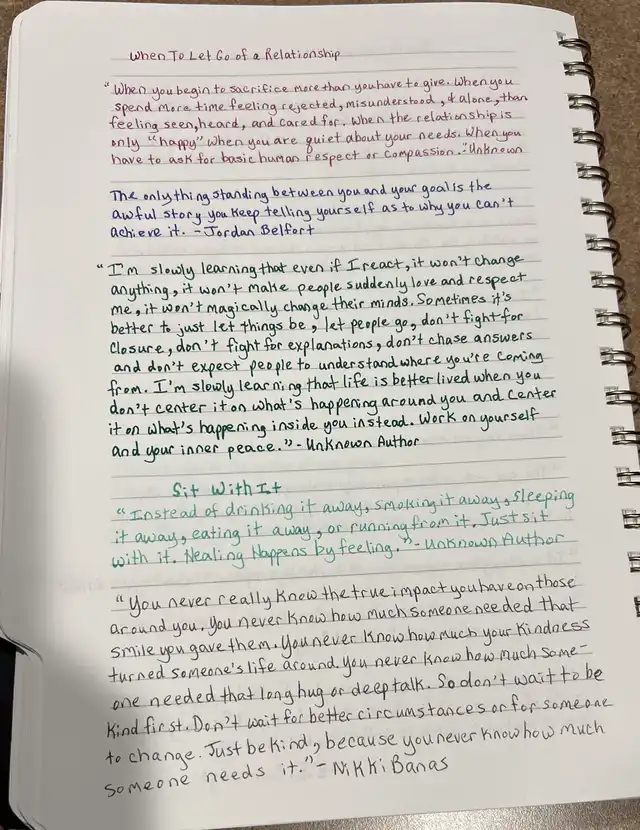 When To Let Go of a Relationship
"When you begin to sacrifice more than you have to give. When you
spend more time feeling rejected, misunderstood, & alone, than
feeling seen, heard, and cared for. When the relationship is
only "happy" when you are quiet about your needs. When you
have to ask for basic human respect or compassion."-Unknown
The only thing standing between you and your goal is the
awful story you keep telling yourself as to why you can't
achieve it. - Jordan Belfort
"I'm slowly learning that even if I react, it won't change
anything, it won't make people suddenly love and respect
me, it won't magically change their minds. Sometimes it's
better to just let things be, let people go, don't fight for
closure, don't fight for explanations, don't chase answers
and don't expect people to understand where you're coming
from. I'm slowly learning that life is better lived when you
don't center it on what's happening around you and center
it on what's happening inside you instead. Work on yourself
and your inner peace." - Unknown Author
Sit With It
"Instead of drinking it away, smoking it away, sleeping
it away, eating it away, or running from it. Just sit
with it. Healing Happens by feeling." - Unknown Author
"You never really know the true impact you have on those
around you. You never know how much someone needed that
smile you gave them. You never know how much your kindness
turned someone's life around. You never know how much some-
one needed that long hug or deep talk. So don't wait to be
kind first. Don't wait for better circumstances or for someone
to change. Just be kind, because you never know how much
someone needs it." - Nikki Banas